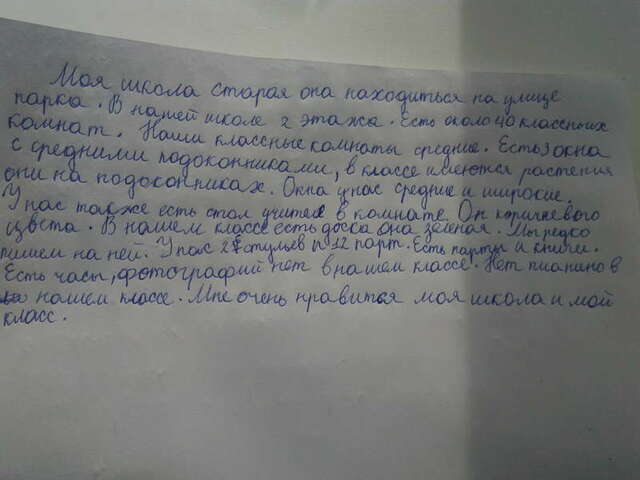 Моя школа старая она находиться на улице
парка. В нашей школе 2 этажа. Есть около 40 классных
комнат. Наши классные комнаты средние. Есть 3 окна
с средними подоконниками, в классе имеются растения
они на подоконниках. Окна у нас средние и широкие.
У нас также есть стол учителя в комнате. Он коричневого
цвета. В нашем классе есть доска она зеленая. Мы редко
пишем на ней. У нас 24 стульев и 12 парт. Есть парты и книги.
Есть часы, фотографий нет в нашем классе. Нет пианино в
нашем классе. Мне очень нравиться моя школа и мой
класс.